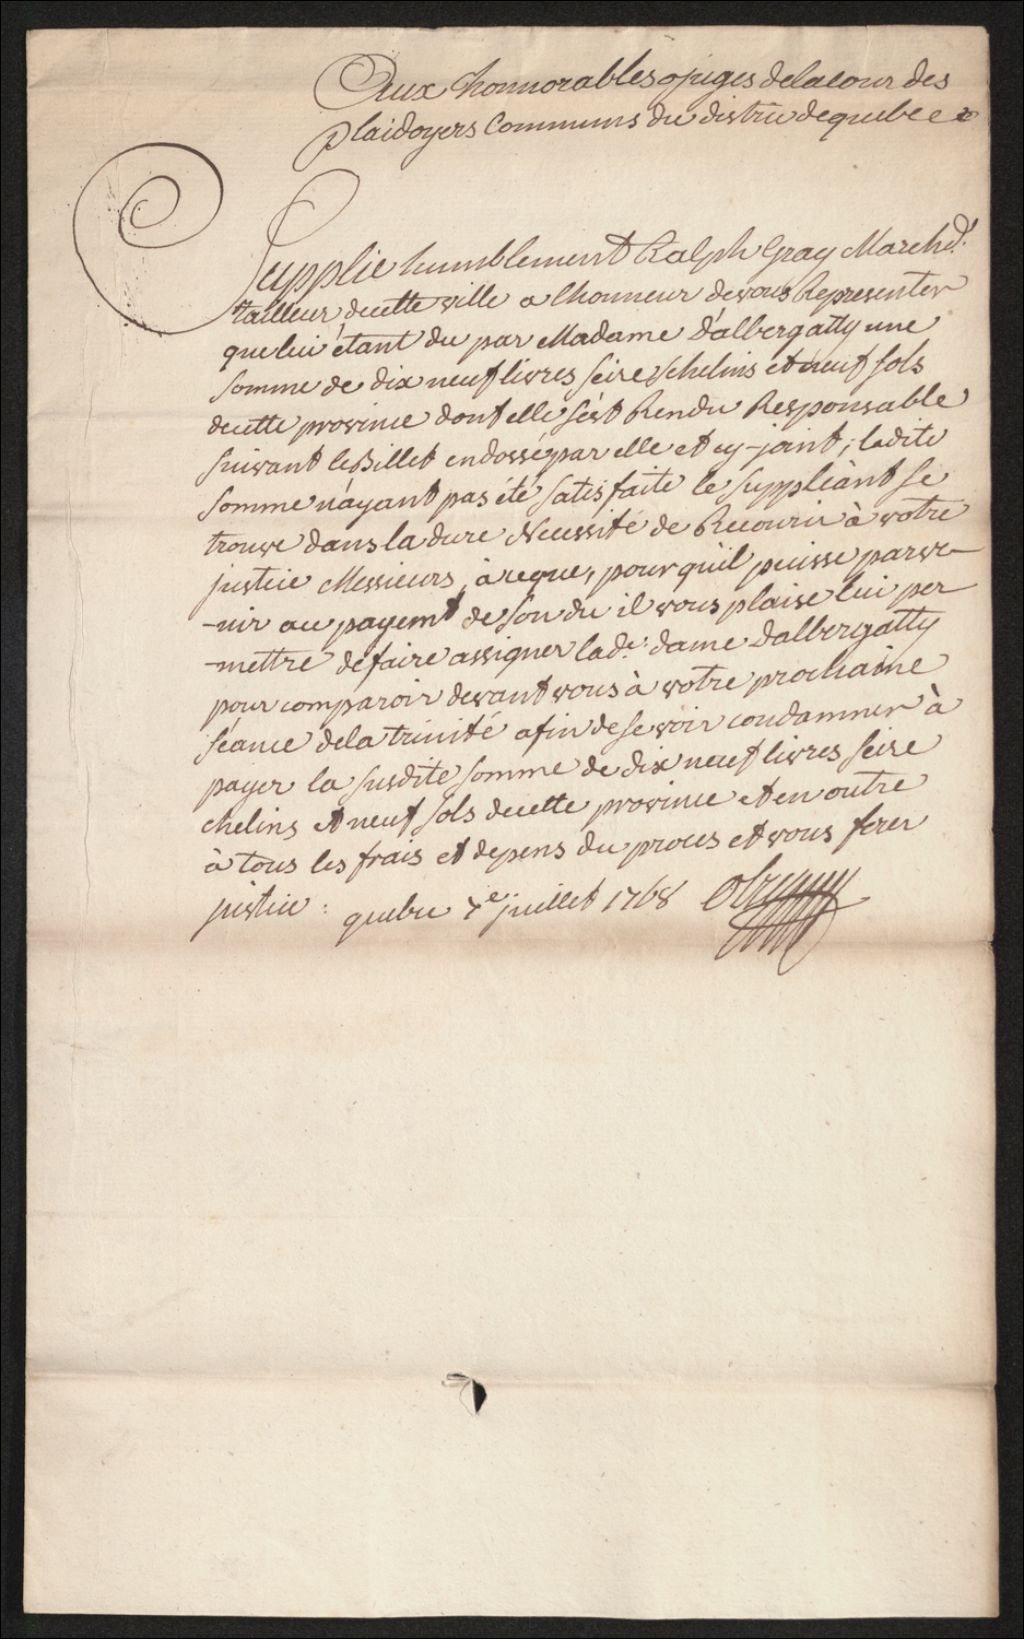 Aux honnorables juges delacour des
plaidoyers Communs du distric dequebec
Supplie humblement Ralph Gray Marchd.
tailleur decette ville a lhonneur devous Representer
quelui étant du par Madame D'albergatty une
somme de dix neuf livres seize schelins et neuf sols
decette province dont elle s'est Rendu Responsable
suivant leBillet endossé par elle et cy-joint; ladite
somme n'ayant pas été satisfaite le suppliant se
trouve dans la dure Necessité de Recourir à votre
justice Messieurs, à ceque, pour quil puisse parve-
-nir au payemt de son du il vous plaise lui per-
-mettre defaire assigner lade. dame Dalbergatty
pour comparoir devant vous à votre prochaine
séance dela trinité afin dese voir condamner à
payer la susdite somme de dix neuf livres seize
chelins et neuf sols decette province et en outre
à tous les frais et depens du proces et vous ferer
justice: quebec 7e juillet 1768